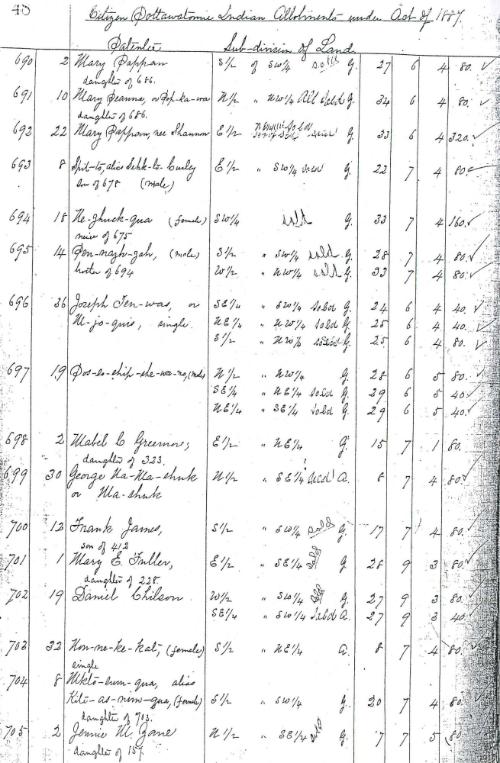 40 Citizen Pottawatomie Indian Allotments under Act of 1887.
Patentee Sub-division of Land
690 2 Mary Pappan S1/2 of SW1/4 sold G. 27 6 4 80.
daughter of 686.
691 10 Mary Jeanne, or N1/2 " NW1/4 All Sold G. 34 6 4 80.
daughter of 686.
692 22 Mary Pappan, nee Shannon E1/2 G. 33 6 4 320.
693 8 alias E1/2 " SW1/4 sold G. 22 7 4 80
son of 678 (male)
694 18 Ne-ghuck-qua (female) SW1/4 sold G. 33 7 4 160.
niece of 675
695 14 Pen-nagh-gah, (male) S1/2 " SW1/4 sold G. 28 7 4 80.
brother of 694 W1/2 " NW1/4 sold G. 33 7 4 80.
696 36 Joseph Ten-was, or SE1/4 " SW1/4 sold G. 24 6 4 40.
Ni-jo-quis, single. NE1/4 " NW1/4 sold G. 25 6 4 40.
S1/2 " NW1/4 sold G. 25 6 4 80.
697 19 N1/2 " NW1/4 G. 28 6 5 80.
SE1/4 " NE1/4 sold G. 29 6 5 40
NE1/4 " SE1/4 sold G. 29 6 5 40.
698 2 Mabel C Greemore, E1/2 " NE1/4 G 15 7 1 80.
daughter of 323.
699 30 George Na-Wa-shuk N1/2 " SE1/4 sold A. 8 7 4 80.
or Wa-shuk
700 12 Frank James, S1/2 " SW1/4 sold G. 17 7 4 80.
son of 412
701 1 Mary E. Fuller, E1/2 " SE1/4 sold G. 28 9 3 80.
daughter of 228.
702 19 Daniel Chilson W1/2 " SW1/4 sold G. 27 9 3 80.
SE1/4 " SW1/4 Sold A. 27 9 3 40.
703 32 Kon-ne-ke-kat, (female) S1/2 " NE1/4 A. 8 7 4 80.
single
704 8 alias
Kite-as-nim-qua, (female) S1/2 " SW1/4 G. 20 7 4 80.
daughter of 703.
705 2 Jennie M. Zane N1/2 " SE1/4 sold G 7 7 5 80.
daughter of 157.